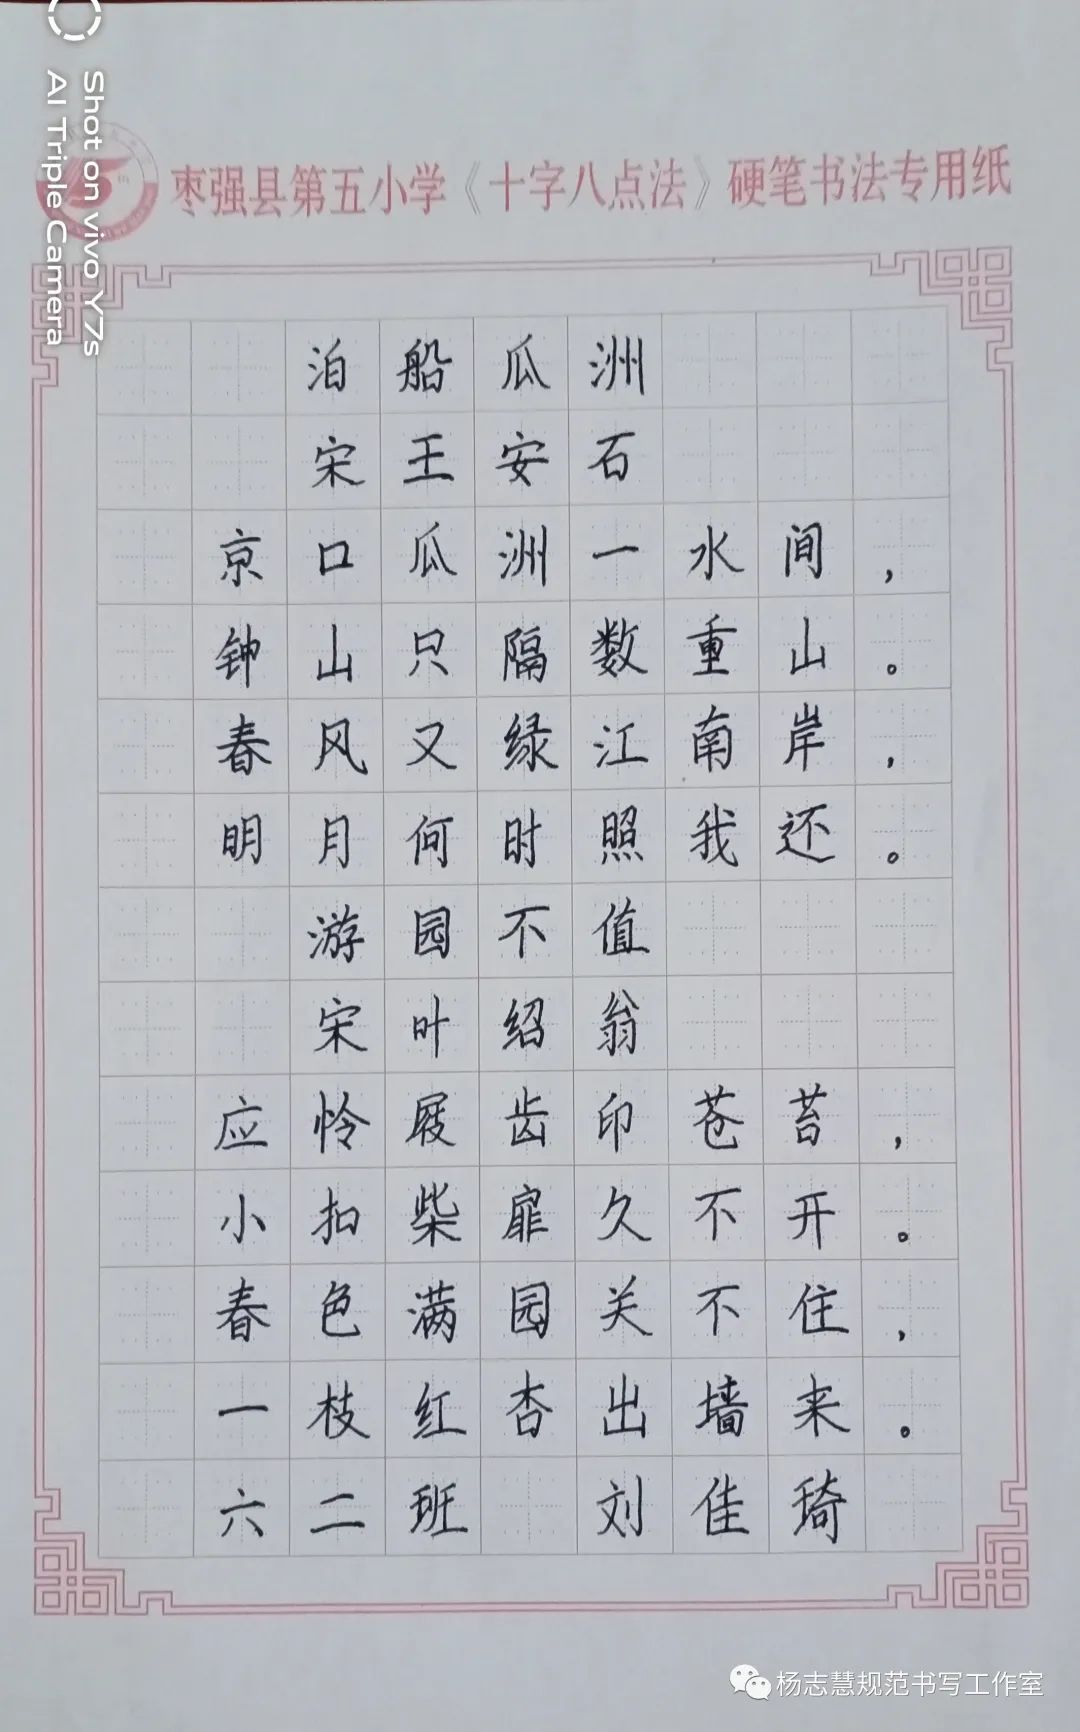 Shot on vivo Y7s
AI Triple Camera
枣强县第五小学《十字八点法》硬笔书法专用纸
泊船瓜洲
宋王安石
京口瓜洲一水间，
钟山只隔数重山。
春风又绿江南岸，
明月何时照我还。
游园不值
宋叶绍翁
应怜屐齿印苍苔，
小扣柴扉久不开。
春色满园关不住，
一枝红杏出墙来。
六二班 刘佳琦
杨志慧规范书写工作室